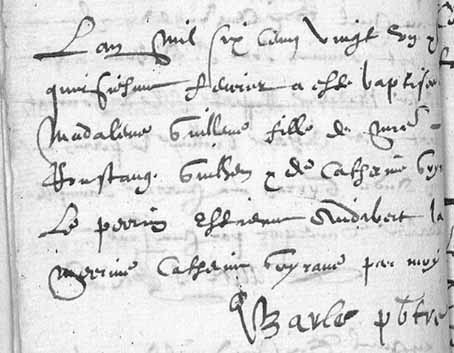 Lan mil six cens vingt et un
quinsiesme fevrier a este baptisee
Madalene Guilleue fille de
Roustang Guilhen & de Catherine
Le perrin Estienne Audibert la
merrine Catherine par moy
Barle pbtre